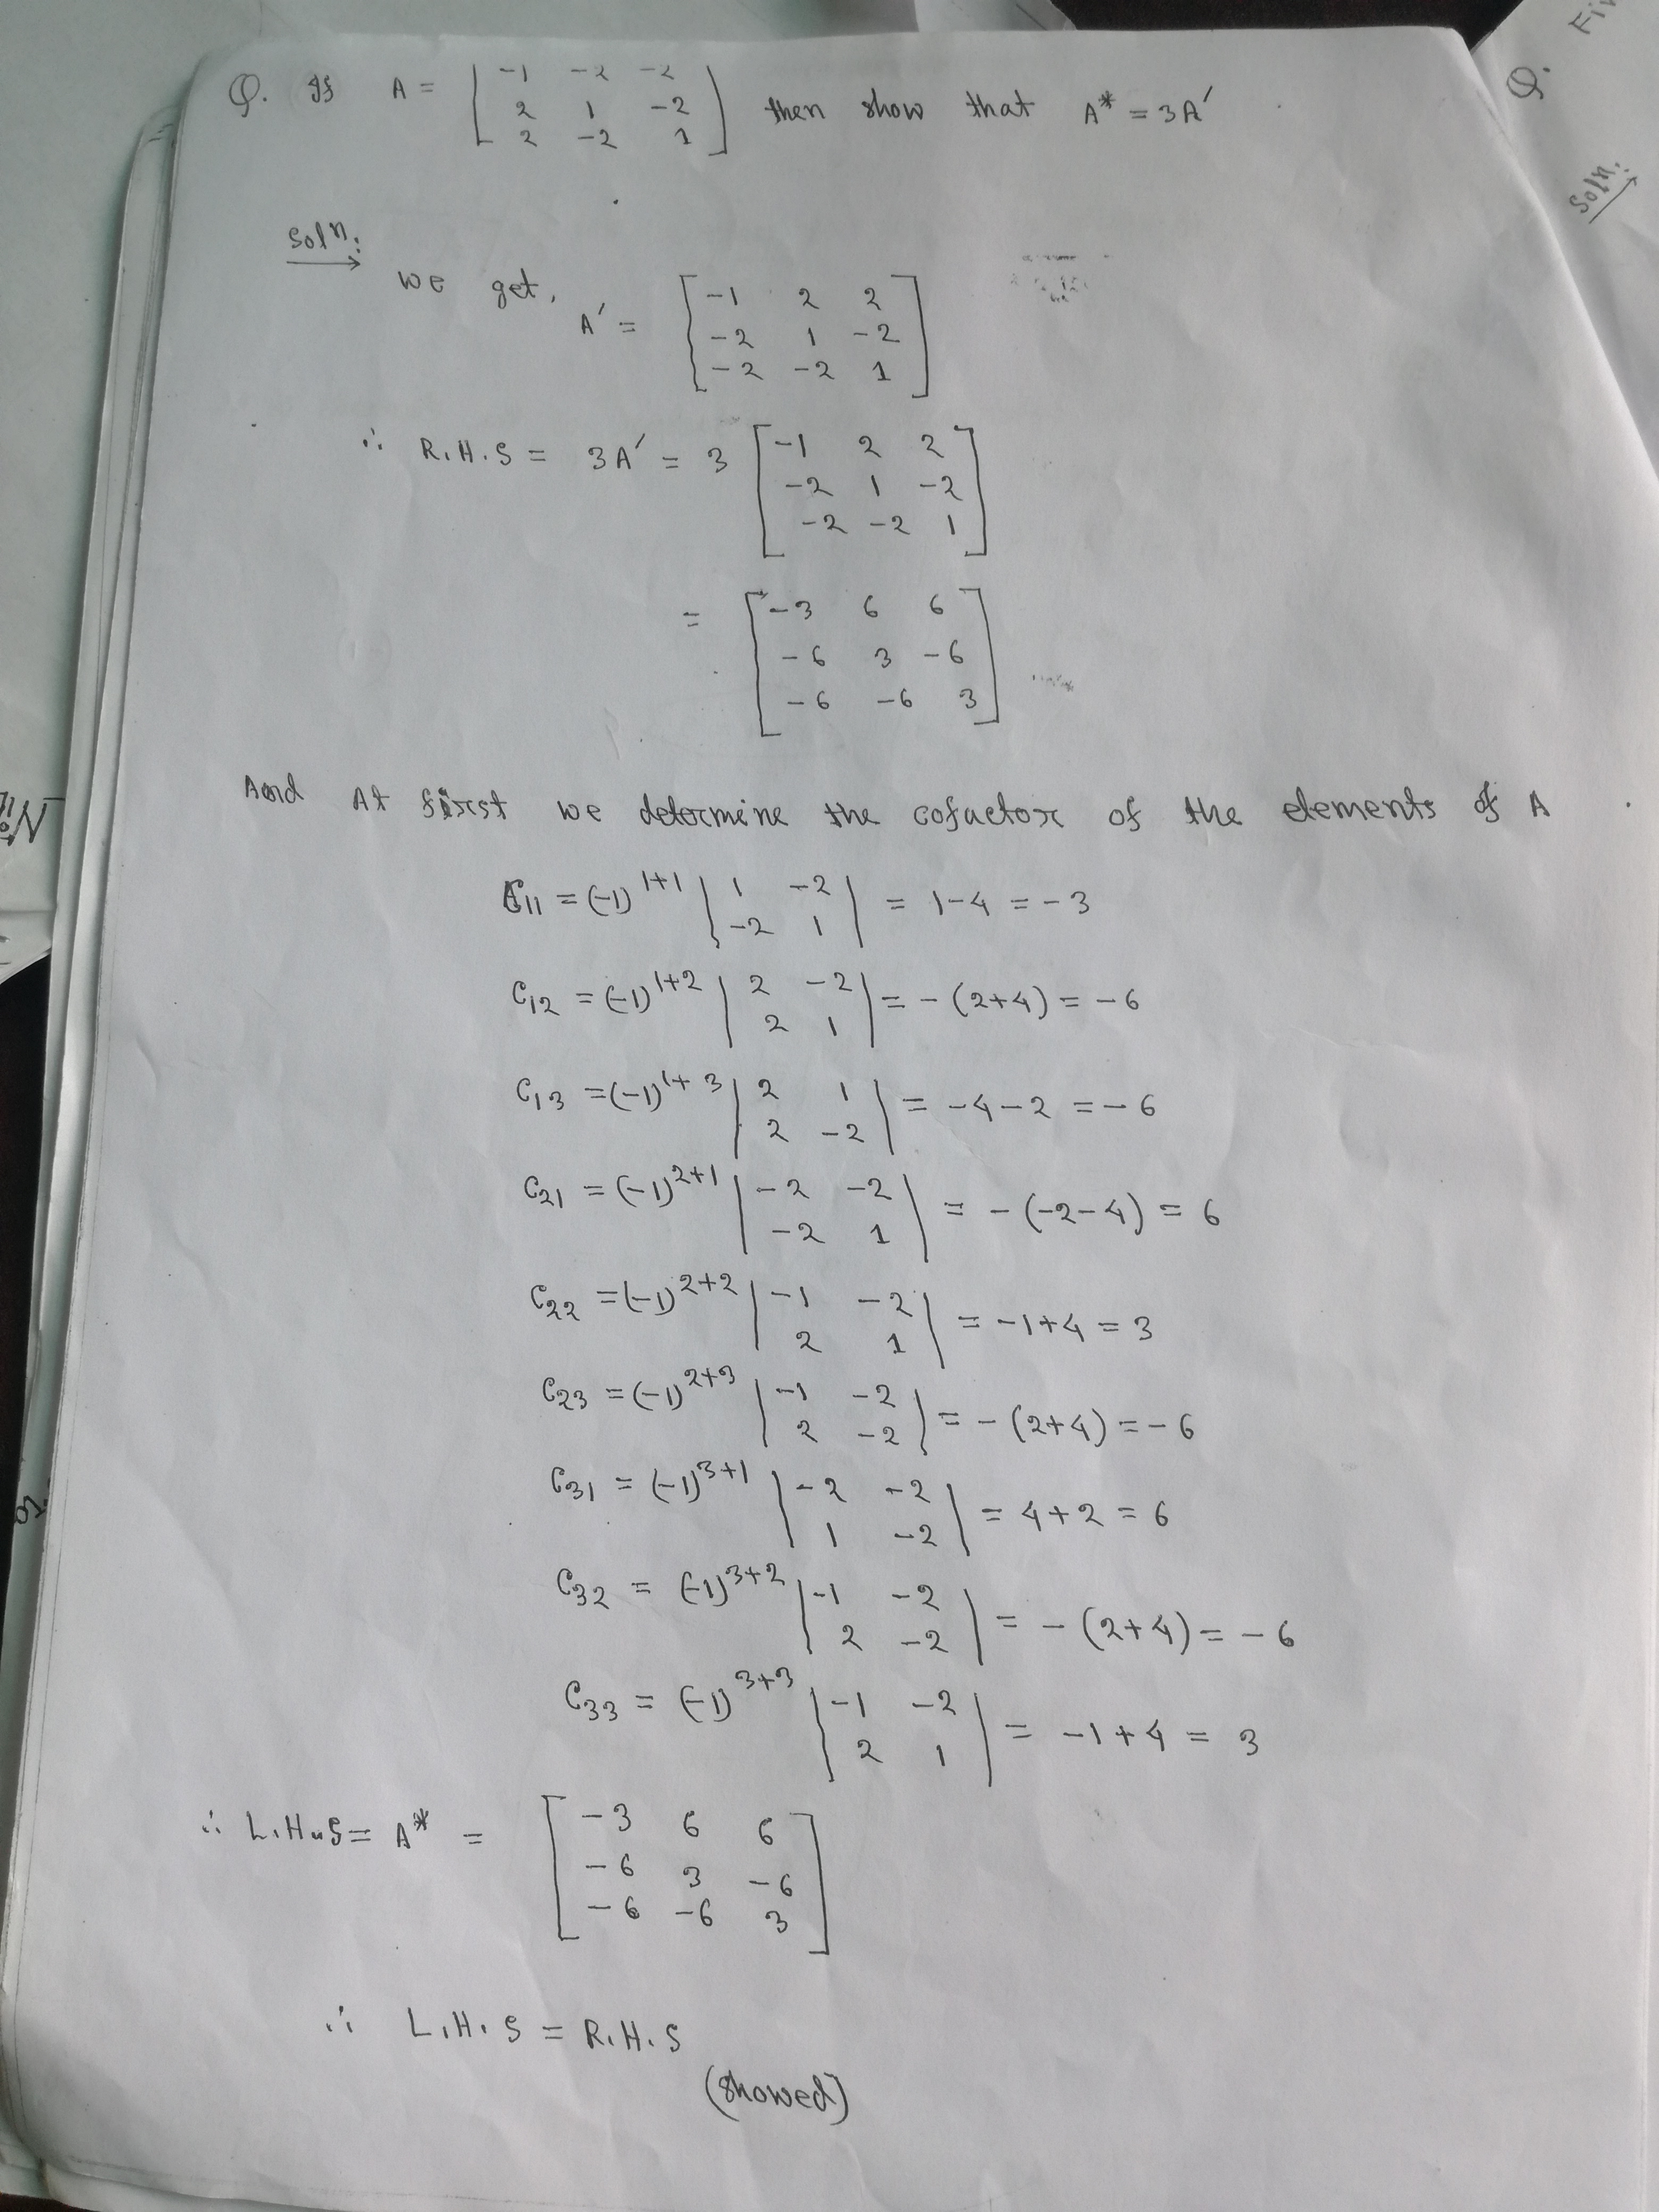 Q. If A = [ -1 -2 -2
2 1 -2
2 -2 1 ] then show that A* = 3A′
Solⁿ:
we get, A′ = [ -1 2 2
-2 1 -2
-2 -2 1 ]
∴ R.H.S = 3A′ = 3 [ -1 2 2
-2 1 -2
-2 -2 1 ]
= [ -3 6 6
-6 3 -6
-6 -6 3 ]
And At first we determine the cofactor of the elements of A
C₁₁ = (-1)¹⁺¹ | 1 -2
-2 1 | = 1-4 = -3
C₁₂ = (-1)¹⁺² | 2 -2
2 1 | = -(2+4) = -6
C₁₃ = (-1)¹⁺³ | 2 1
2 -2 | = -4-2 = -6
C₂₁ = (-1)²⁺¹ | -2 -2
-2 1 | = -(-2-4) = 6
C₂₂ = (-1)²⁺² | -1 -2
2 1 | = -1+4 = 3
C₂₃ = (-1)²⁺³ | -1 -2
2 -2 | = -(2+4) = -6
C₃₁ = (-1)³⁺¹ | -2 -2
1 -2 | = 4+2 = 6
C₃₂ = (-1)³⁺² | -1 -2
2 -2 | = -(2+4) = -6
C₃₃ = (-1)³⁺³ | -1 -2
2 1 | = -1+4 = 3
∴ L.H.S = A* = [ -3 6 6
-6 3 -6
-6 -6 3 ]
∴ L.H.S = R.H.S
(showed)
Q.
Solⁿ: